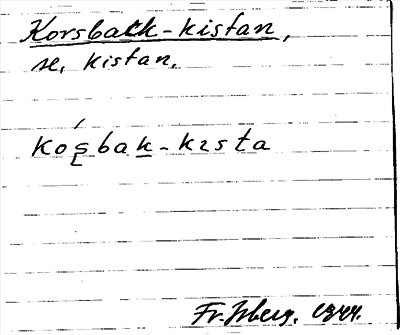 Korsback-kistan,
se, kistan.
kóʂbak-kɪsta
Fr. Isberg. 1944.